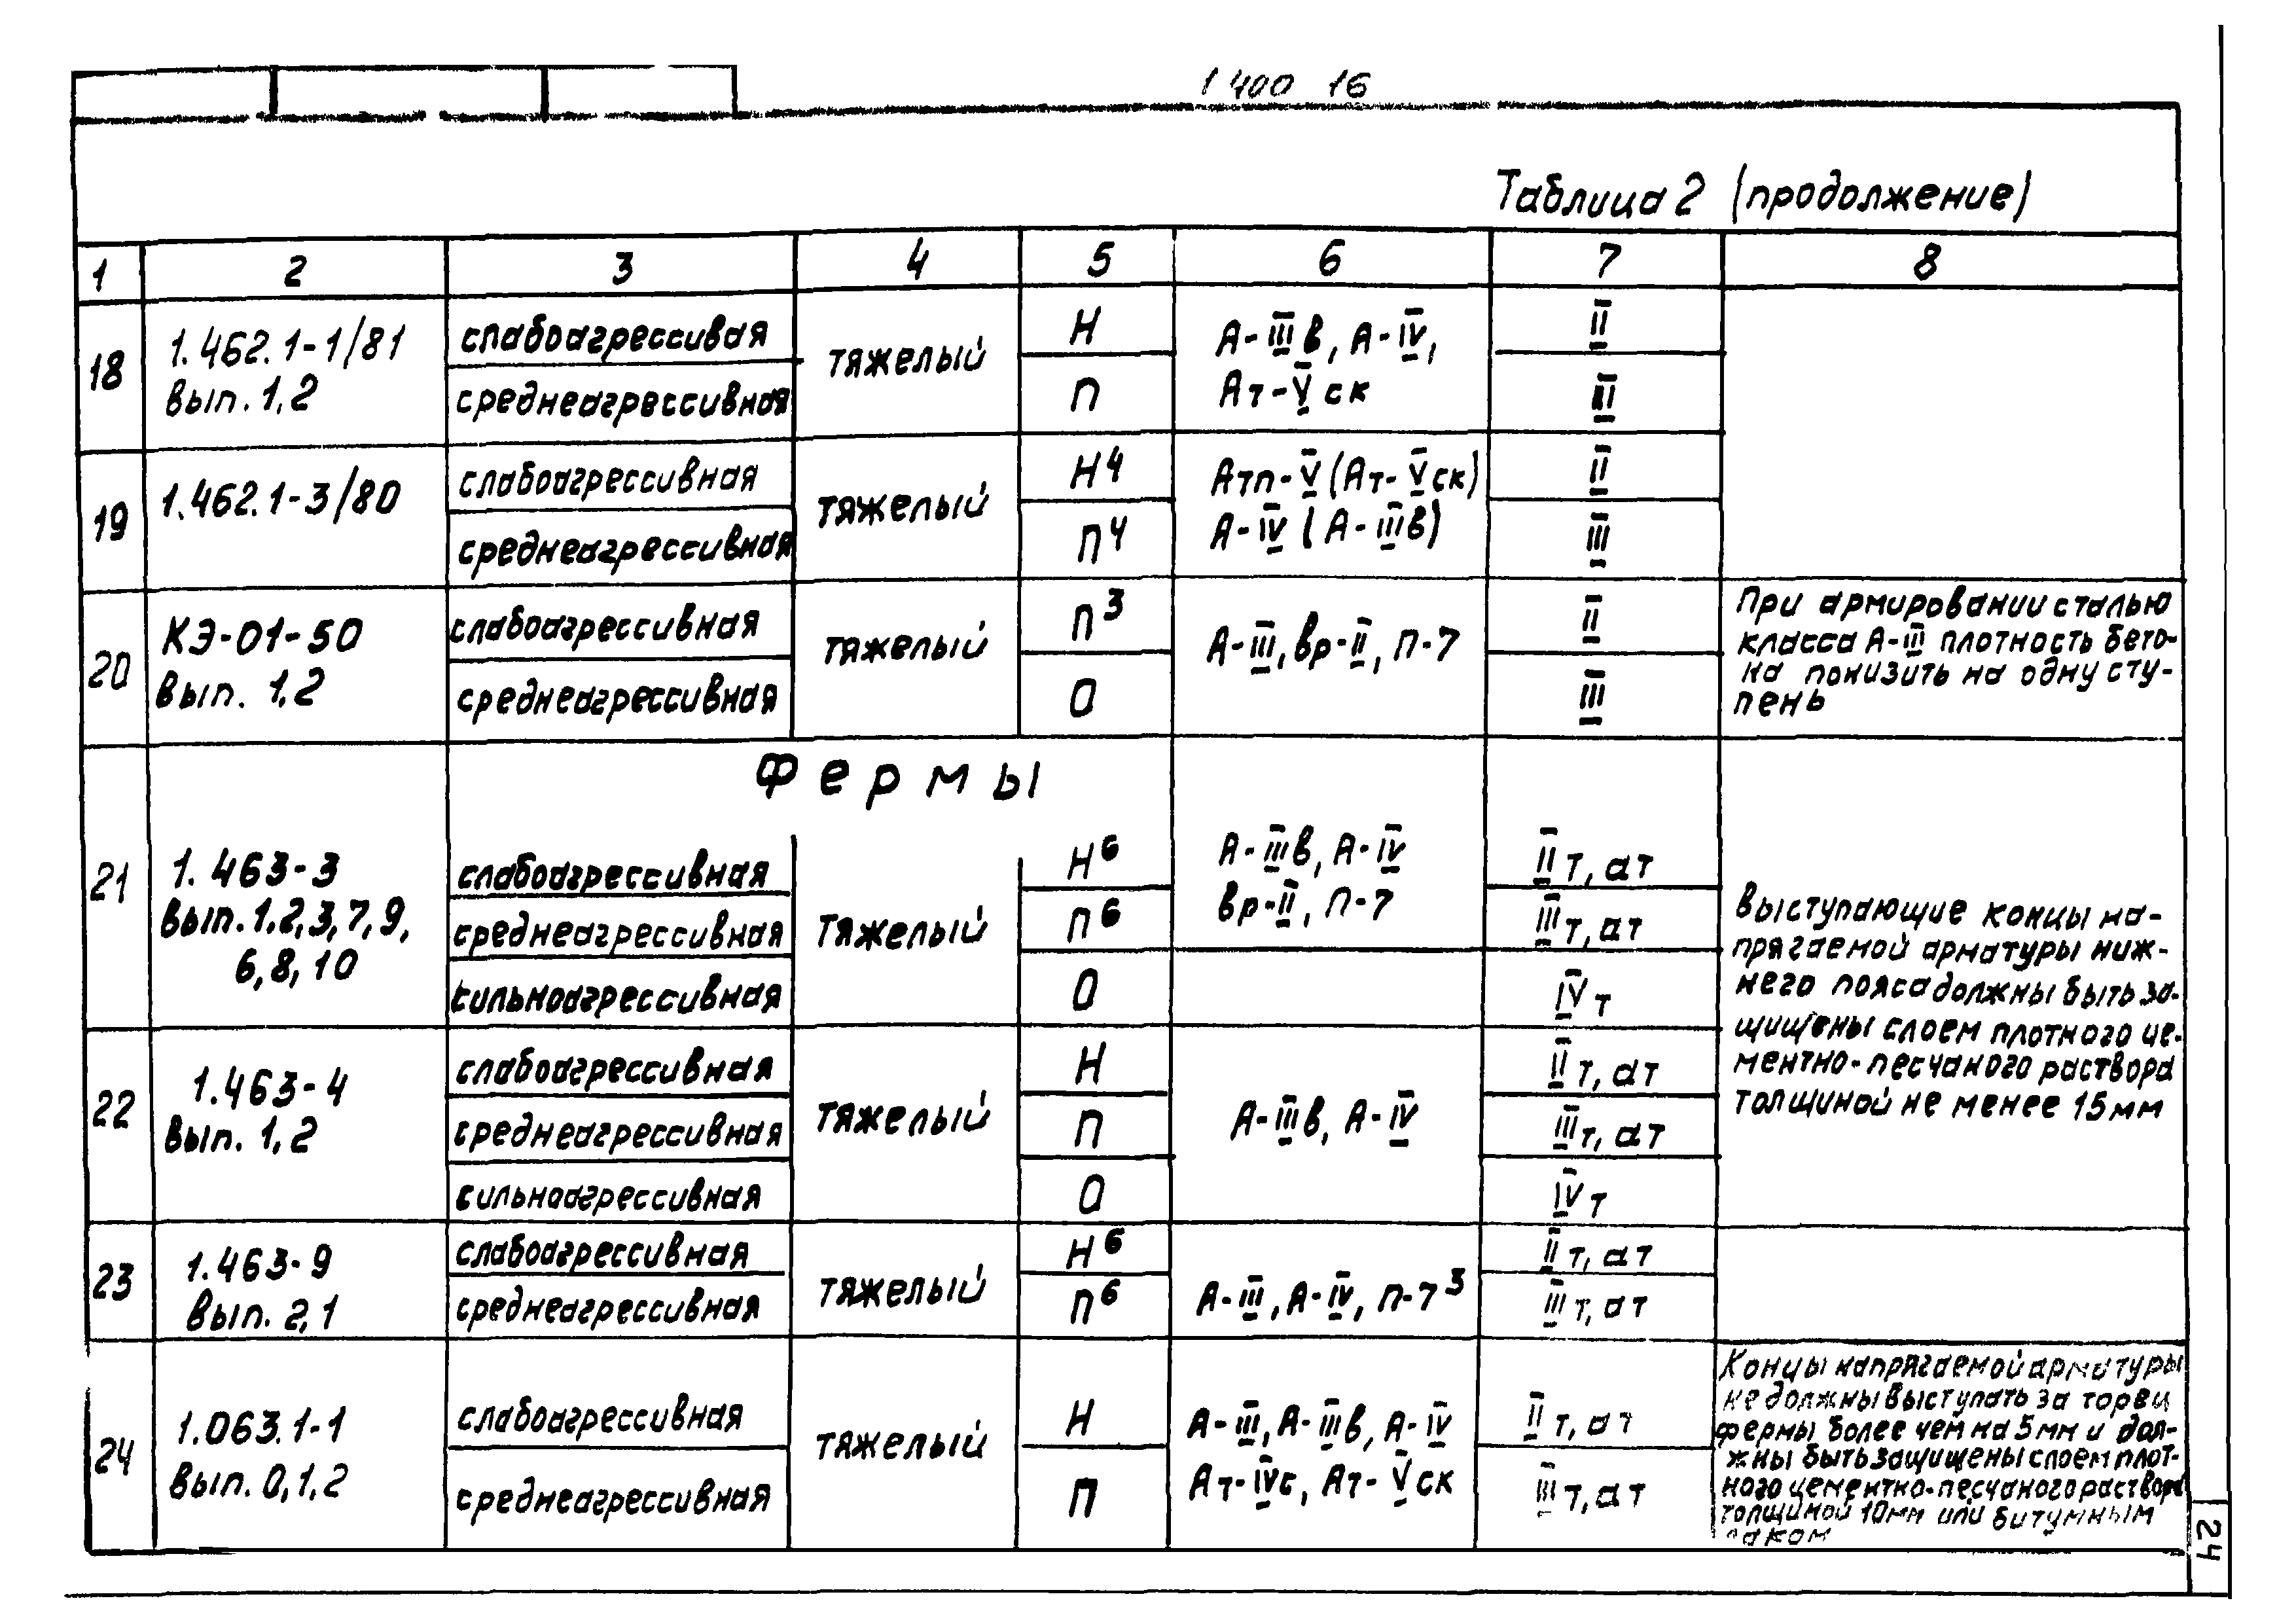 1 400 16
Таблица 2 (продолжение)
1 2 3 4 5 6 7 8
18
1.462.1-1/81
вып. 1,2
слабоагрессивая
среднеагрессивная
тяжелый
Н
П
А-IIIв, А-IV,
Ат-Vск
II
III
19
1.462.1-3/80
слабоагрессивная
среднеагрессивная
тяжелый
Н⁴
П⁴
Атп-V (Ат-Vск)
А-IV (А-IIIв)
II
III
20
КЭ-01-50
вып. 1,2
слабоагрессивная
среднеагрессивная
тяжелый
П³
О
А-III, Вр-II, П-7
II
III
При армировании сталью
класса А-III плотность бето-
на понизить на одну сту-
пень
Фермы
21
1.463-3
вып. 1,2,3,7,9,
6,8,10
слабоагрессивная
среднеагрессивная
сильноагрессивная
тяжелый
Н⁶
П⁶
О
А-IIIв, А-IV
Вр-II, П-7
II т, ат
III т, ат
IV т
Выступающие концы на-
прягаемой арматуры ниж-
него пояса должны быть за-
щищены слоем плотного це-
ментно-песчаного раствора
толщиной не менее 15мм
22
1.463-4
вып. 1,2
слабоагрессивная
среднеагрессивная
сильноагрессивная
тяжелый
Н
П
О
А-IIIв, А-IV
II т, ат
III т, ат
IV т
23
1.463-9
вып. 2,1
слабоагрессивная
среднеагрессивная
тяжелый
Н⁶
П⁶
А-III, А-IV, П-7³
II т, ат
III т, ат
24
1.063.1-1
вып. 0,1,2
слабоагрессивная
среднеагрессивная
тяжелый
Н
П
А-III, А-IIIв, А-IV
Ат-IVс, Ат-Vск
II т, ат
III т, ат
Концы напрягаемой арматуры
не должны выступать за торец
фермы более чем на 5мм и дол-
жны быть защищены слоем плот-
ного цементно-песчаного раствора
толщиной 10мм или битумным
лаком
24